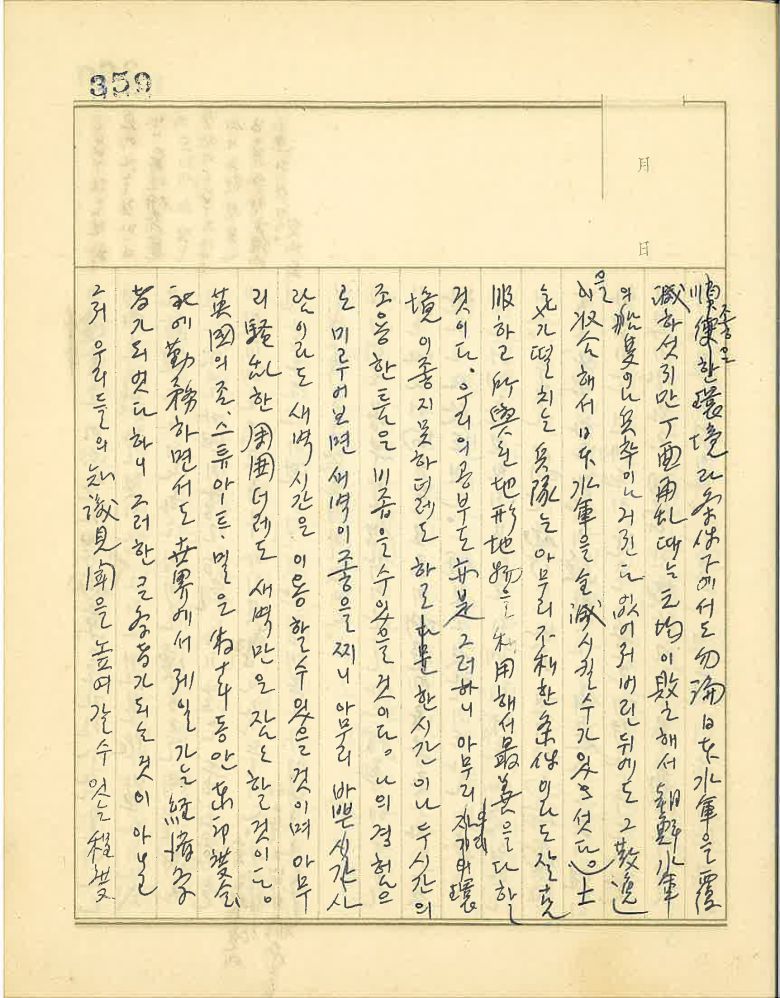 359
月 日
順便한 좋은 環境과 条件下에서도 勿論 日本水軍을 覆
滅하셧지만 丁酉再乱 때는 元均이 敗亡해서 朝鮮水軍
의 船隻이나 兵卒이나 거진 다 없어저버린 뒤에도 그 散逸
을 收合해서 日本水軍을 全滅시킬 수가 있으셧다。 士
気가 떨치는 兵隊는 아무리 不利한 条件이라도 잘 克
服하고 所與된 地形地物을 利用해서 最善을 다할
것이다。 우리의 공부도 亦是 그러하니 아무리 우리 環
境이 좋지 못하더래도 하로 한시간이나 두시간의
조용한 틈은 비좁을 수 있을 것이다。 나의 경험으
로 미루어보면 새벽이 좋을찌니 아무리 바쁜 사람
이라도 새벽 시간은 이용할 수 있을 것이며 아무
리 騷乱한 周囲더래도 새벽만은 잠도할 것이다。
英國의 죤.스튜아트.밀은 동안 東印度会
社에 勤務하면서도 世界에서 제일가는 経濟学
者가 되엿다 하니 그러한 큰 学者가 되는 것이 아닐
그저 우리들의 知識見聞을 높여갈 수 있는 程度